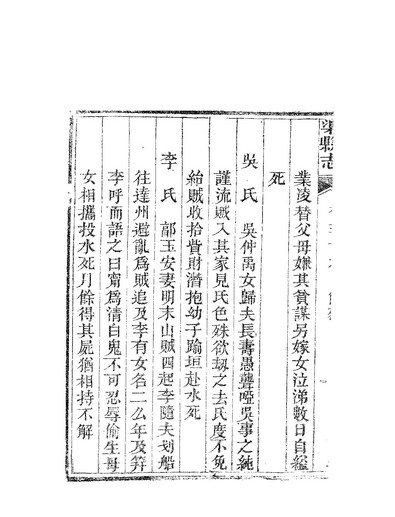 渠縣志
業凌替父母嫌其貧謀另嫁女泣涕數日自縊
死
吳氏 吳仲禹女歸夫長壽愚聾啞吳事之純
謹流賊入其家見氏色殊欲刼之去氏度不免
紿賊收拾貲財潛抱幼子踰垣赴水死
李氏 郭玉安妻明末山賊四起李隨夫刬船
往達州避亂爲賊追及李有女名二么年及笄
李呼而語之曰甯爲清白鬼不可忍辱偷生母
女相攜投水死月餘得其屍猶相持不解